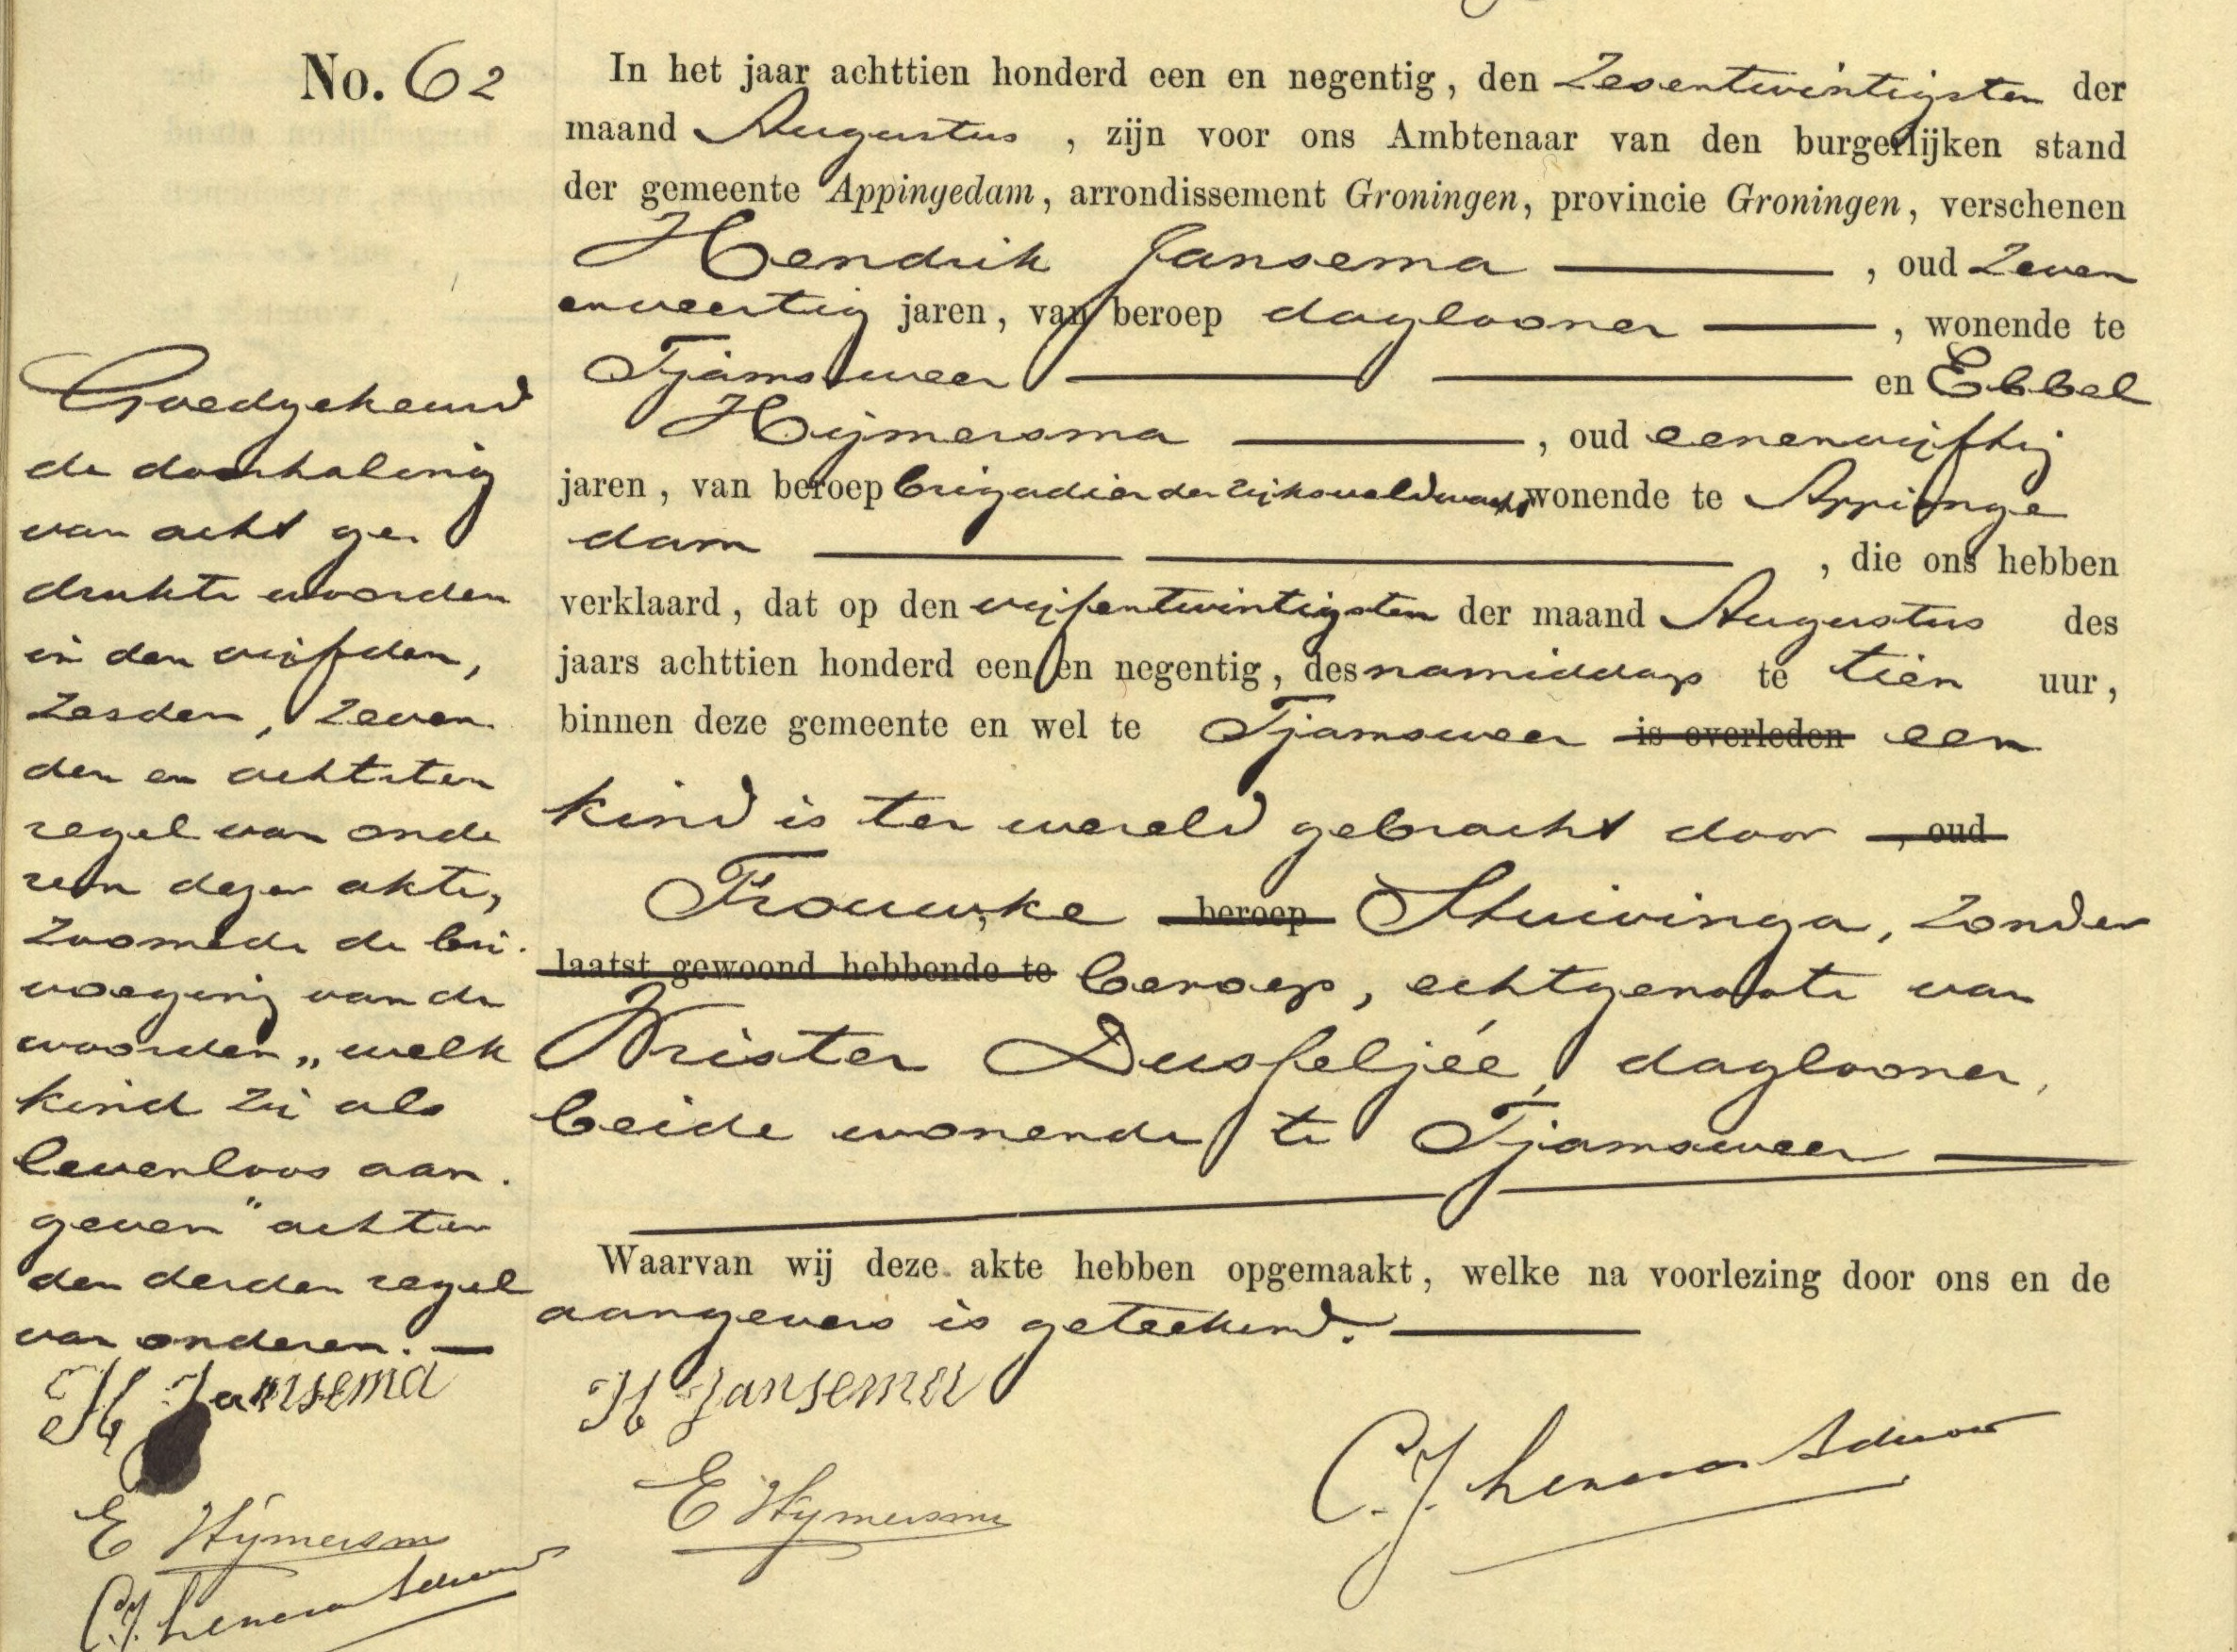 No. 62
In het jaar achttien honderd een en negentig, den Zesentwintigsten der
maand Augustus, zijn voor ons Ambtenaar van den burgerlijken stand
der gemeente Appingedam, arrondissement Groningen, provincie Groningen, verschenen
Hendrik Jansema, oud Zeven
enveertig jaren, van beroep daglooner, wonende te
Tjamsweer en Ebbel
Hijmersma, oud eenenvijftig
jaren, van beroep brigadier der rijksveldwacht, wonende te Appinge
dam, die ons hebben
verklaard, dat op den vijfentwintigsten der maand Augustus des
jaars achttien honderd een en negentig, des namiddags te tien uur,
binnen deze gemeente en wel te Tjamsweer is overleden een
kind is ter wereld gebracht door , oud
Trouwke beroep Stuivinga, zonder
laatst gewoond hebbende te beroep, echtgenoote van
Krister Dusseljée, daglooner,
beide wonende te Tjamsweer
Waarvan wij deze akte hebben opgemaakt, welke na voorlezing door ons en de
aangevers is geteekend.
H Jansema
E Hijmersma
C. J.
Goedgekeurd
de doorhaling
van acht ge
drukte woorden
in den vijfden,
zesden, zeven
den en achtsten
regel van onde
ren dezer akte,
zoomede de bij
voeging van de
woorden „welk
kind zij als
levenloos aan
geven" achter
den derden regel
van onderen.
H Jansema
E Hijmersma
C. J.